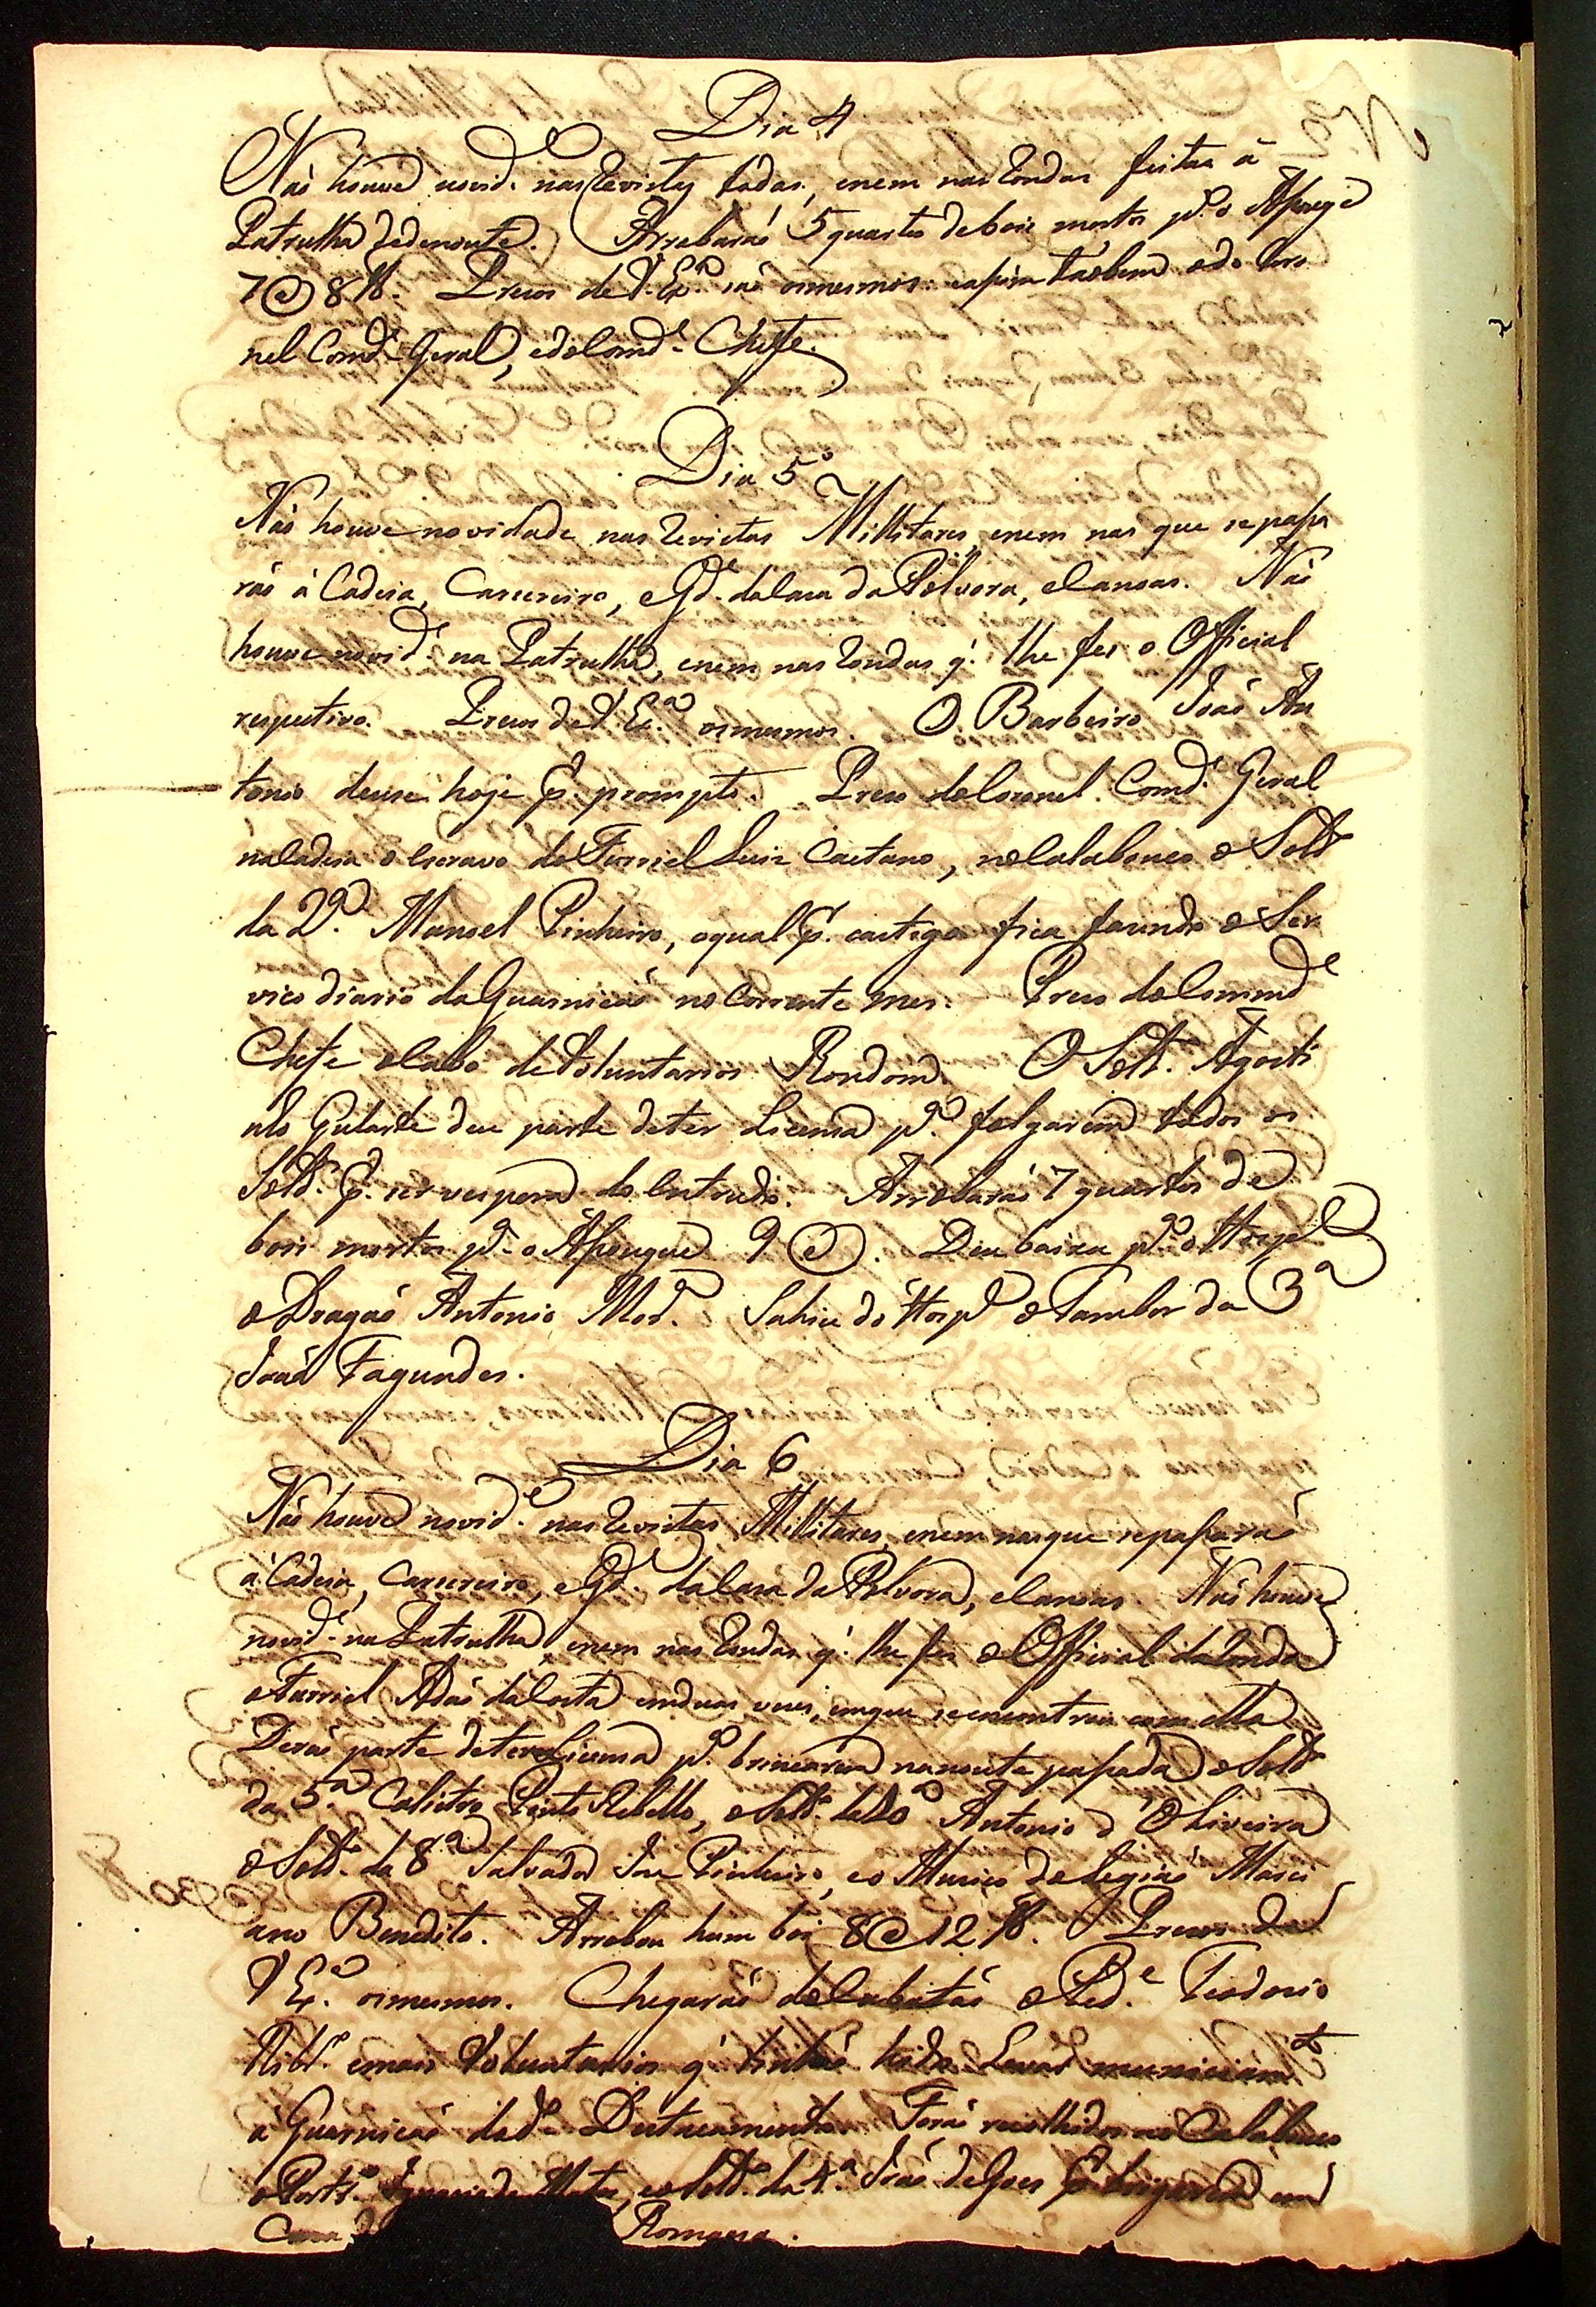 Dia 4
Não houve novid.e nas Revistas todas, enem nas Rondas feitas á
Patrulha dedenoute. Arrobarão 5 quartos de bois mortos p.a o Asouge
7@ 8 lb. Prezos de V. Ex.a são osmesmos: eassim taobem odo Coro
nel Comd.e Geral, edoComd.e Cheffe.
Dia 5
Não houve novidade nas Revistas Millitares, enem nas que sepassa
rão á Cadeia, Carcereiro, eGd.e daCaza daPolvora, eCanoas. Não
houve novid.e na Patrulha, enem nas Rondas q' lhe fez o Official
respectivo. Prezos deV. Ex.a osmesmos. O Barbeiro João An
tonio deuse hoje p. prompto. Prezo doCoronel Comd.e Geral
naCadeia o Escravo do Furriel Luiz Caetano, noCalabouco o Sold.o
da 2.a Manoel Pinheiro, oqual p. castigo fica fazendo o Ser
vico diario daGuarnicaõ no Corrente mez. Prezo doCommd.e
Cheffe oCabo deVoluntarios Rondom. O Sold.o Agosti
nho Gularte deu parte deter Licensa p.a folgarem todos os
Sold.s p. ser vespera do entrudo. Arrobarão 7 quartos de
bois mortos p.a o Asougue 9@. Deu baixa p.a o Hosp.l
o Dragaõ Antonio Mod. Sahiu do Hosp.l o Tambor da 3.a
João Fagundes.
Dia 6
Não houve novid.e nas Revistas Millitares, enem nasque sepassarão
á Cadeia, Carcereiro, eGd.e daCaza daPolvora, eCanoas. Não houve
novid.e na Patrulha, enem nas Rondas q' lhe fez o Official daRonda
oFurriel Adaõ daCosta emduas vezes, emque seencontrou com ella.
Derão parte deteremLicensa p.a brincarem nanoute passada oSold.o
da 5.a Calistro Pinto Rebello, oSold.o da Antonio d'Oliveira
oSold.o da 8.a Salvador Joze Pinheiro, eo Muzico daLegiaõ Marci
ano Benedito. Arrobou hum boi 8@ 12 lb. Prezos de
V Ex.a osmesmos. Chegarão doCubatão oPed.e Teodozio
Rib.o emais Voluntarios q' tinhão hido Levar municiam.to
á Guarnicaõ dod.o Destacamento. Foraõ recolhidos ao Calabouco
oPort.a Ignacio da Mata, eoSold.o da 4.a Joaõ deGoes p. brigarem em
Caza d Romana.